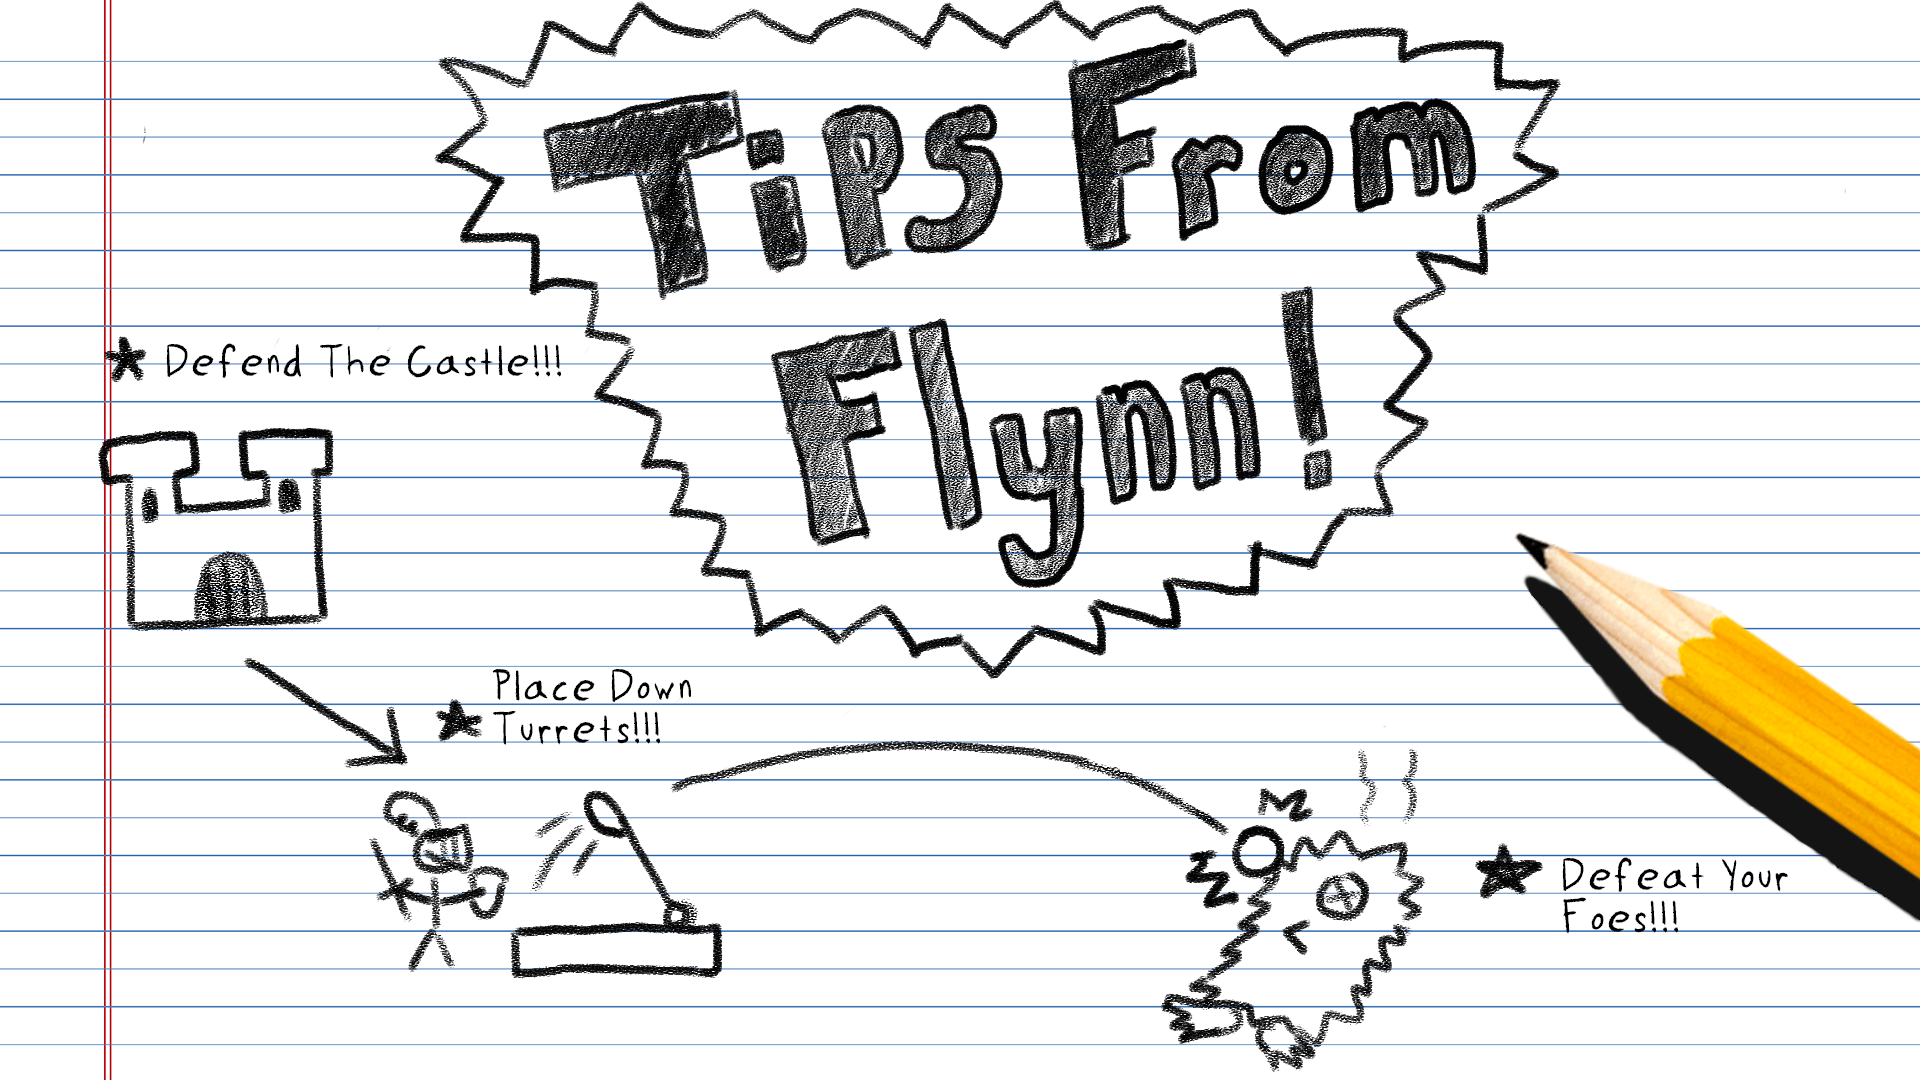 Tips From
Flynn!
Defend The Castle!!!
Place Down
Turrets!!!
Defeat Your
Foes!!!